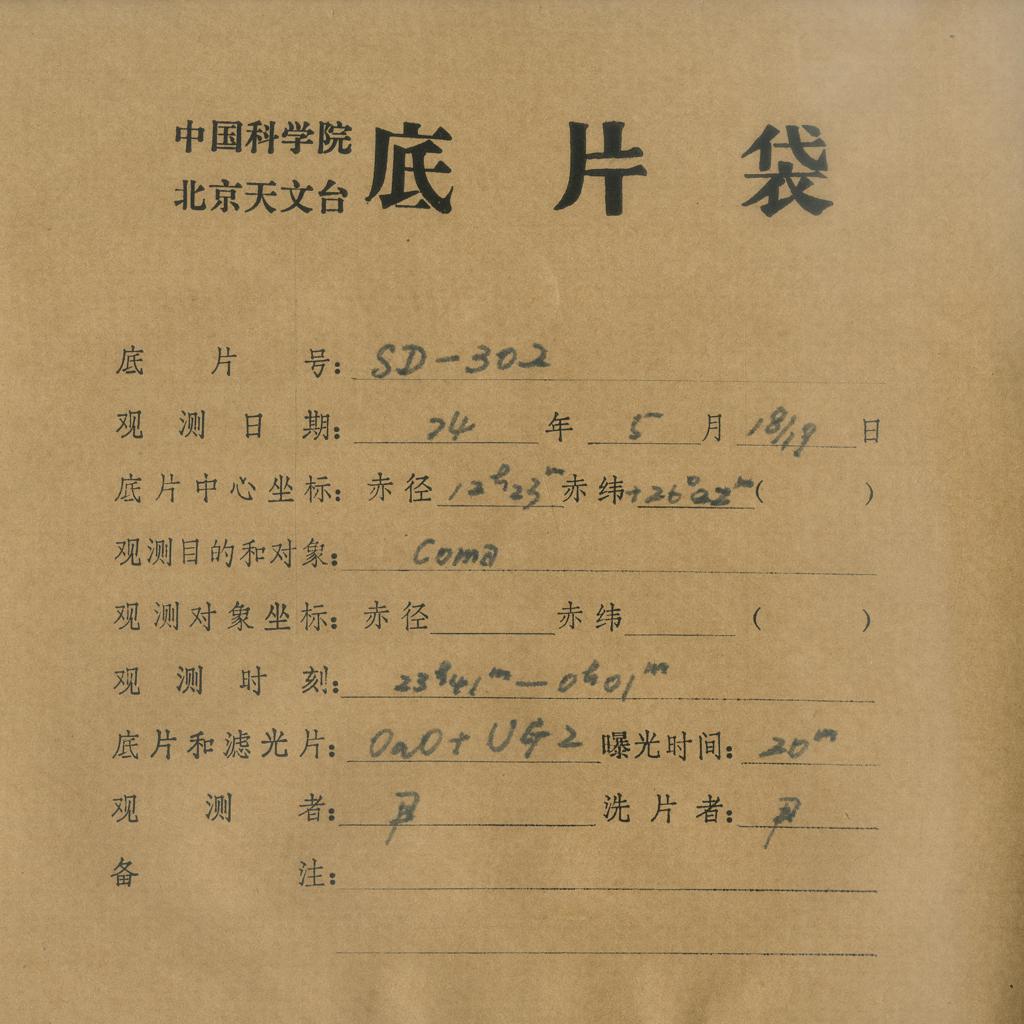 中国科学院
北京天文台
底片袋
底片号：SD-302
观测日期：74年5月18/19日
底片中心坐标：赤径12ʰ23ᵐ赤纬+26°02ᵐ（ ）
观测目的和对象：Coma
观测对象坐标：赤径 赤纬 （ ）
观测时刻：23ʰ41ᵐ—0ʰ01ᵐ
底片和滤光片：OaO+UG2 曝光时间：20ᵐ
观测者： 洗片者：
备注：